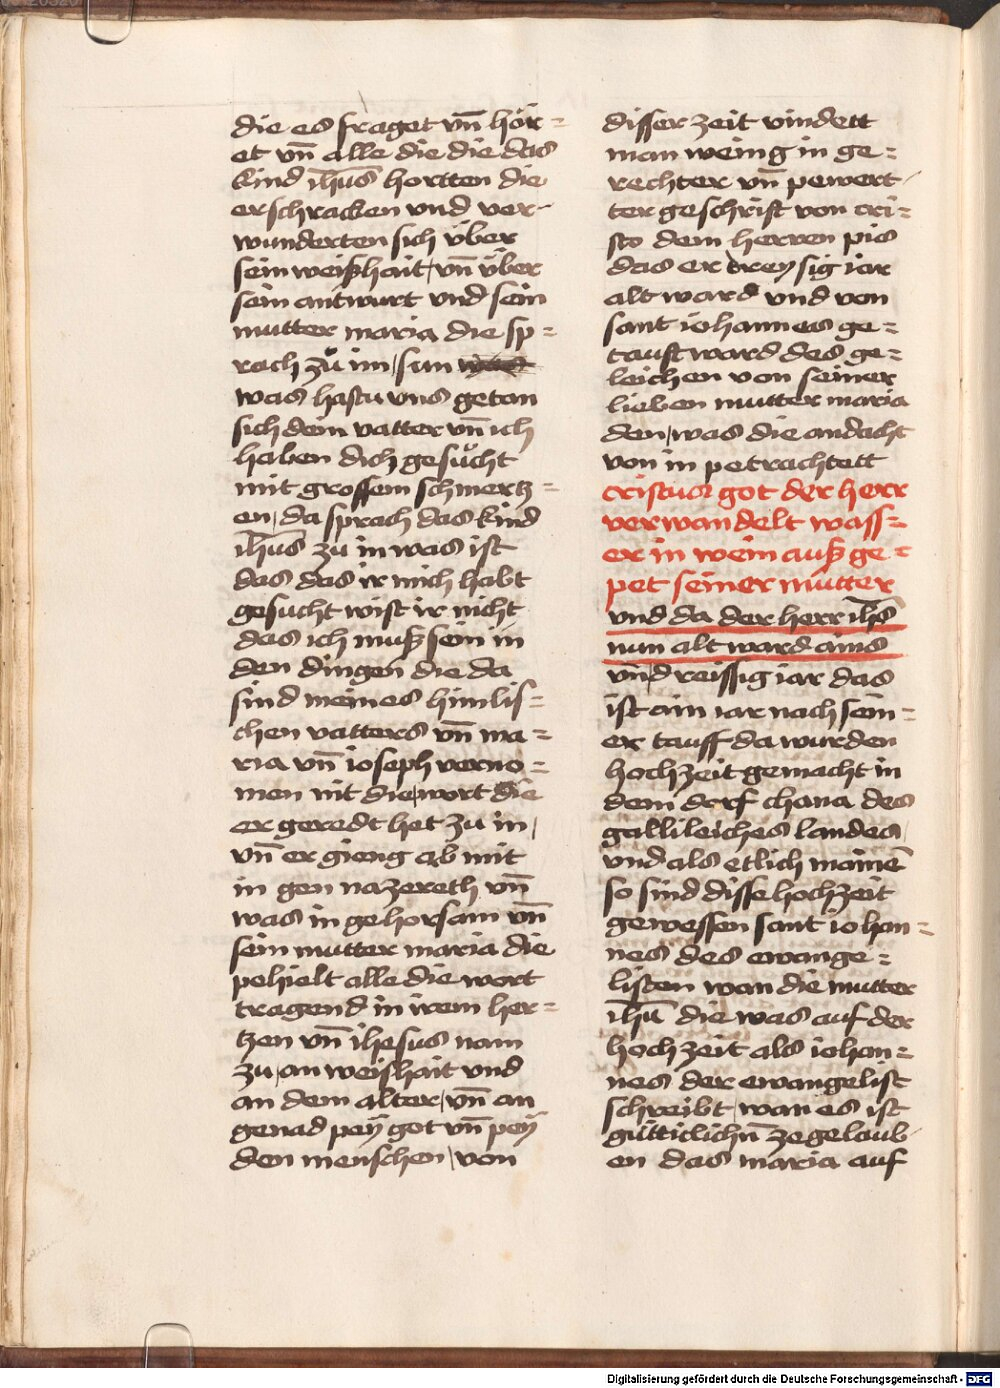 die es fraget vn̄ hör=
et vn̄ alle die die das
kind ih̄us hortten die
erschracken vnd ver-
wunderten sich über
sein weißhait, vn̄ über
sein antwurt vnd sein
mutter maria die sp=
rach zů im, sun
was hastu vns getan
sich dein vatter vn̄ ich
haben dich gesůcht
mit grossem schmertz=
en, da sprach das kind
ih̄us zů in was ist
das das ir mich habt
gesucht wist ir nicht
das ich muß sein in
den dingen die da
sind meines himlis=
chen vatters vn̄ ma=
ria vn̄ ioseph verno=
men nit die, wort die
er geredt het zu in,
vn̄ er gieng ab mit
in gen nazereth vn̄
was in gehorsam vn̄
sein mutter maria die
pehielt alle die wort
tragend in irem her=
tzen vn̄ ihesus nam
zu, an weishait vnd
an dem alter, vn̄ an
genad peÿ got vn̄ peÿ
den menschen, von
disser zeit vindett
man wenig in ge=
rechter vn̄ pewert-
ter geschrift von cri=
sto dem herren pis
das er dreysig iar
alt ward vnd von
sant iohannes ge=
tauft ward des ge=
leichen von seiner
lieben mutter maria
den, was die andacht
von in petrachtett
cristus got der herr
verwandelt wass=
er in wein auß ge=
pet seiner mutter
vnd da der herr ih̄s
nun alt ward ains
vnd reissig iar das
ist ain iar nach sein=
er tauff da wurden
hochzeit gemacht in
dem dorf chana des
gallileiches landes,
vnd als etlich mainen̄
so sind disse hochzeit
gewessen sant iohan=
nes des ewange=
listen wan die mutter
ih̄u die was auf der
hochzeit als iohan=
nes der ewangelist
schreibt, wan es ist
gütticlichn̄ ze gelaub-
en das maria auf
Digitalisierung gefördert durch die Deutsche Forschungsgemeinschaft - DFG